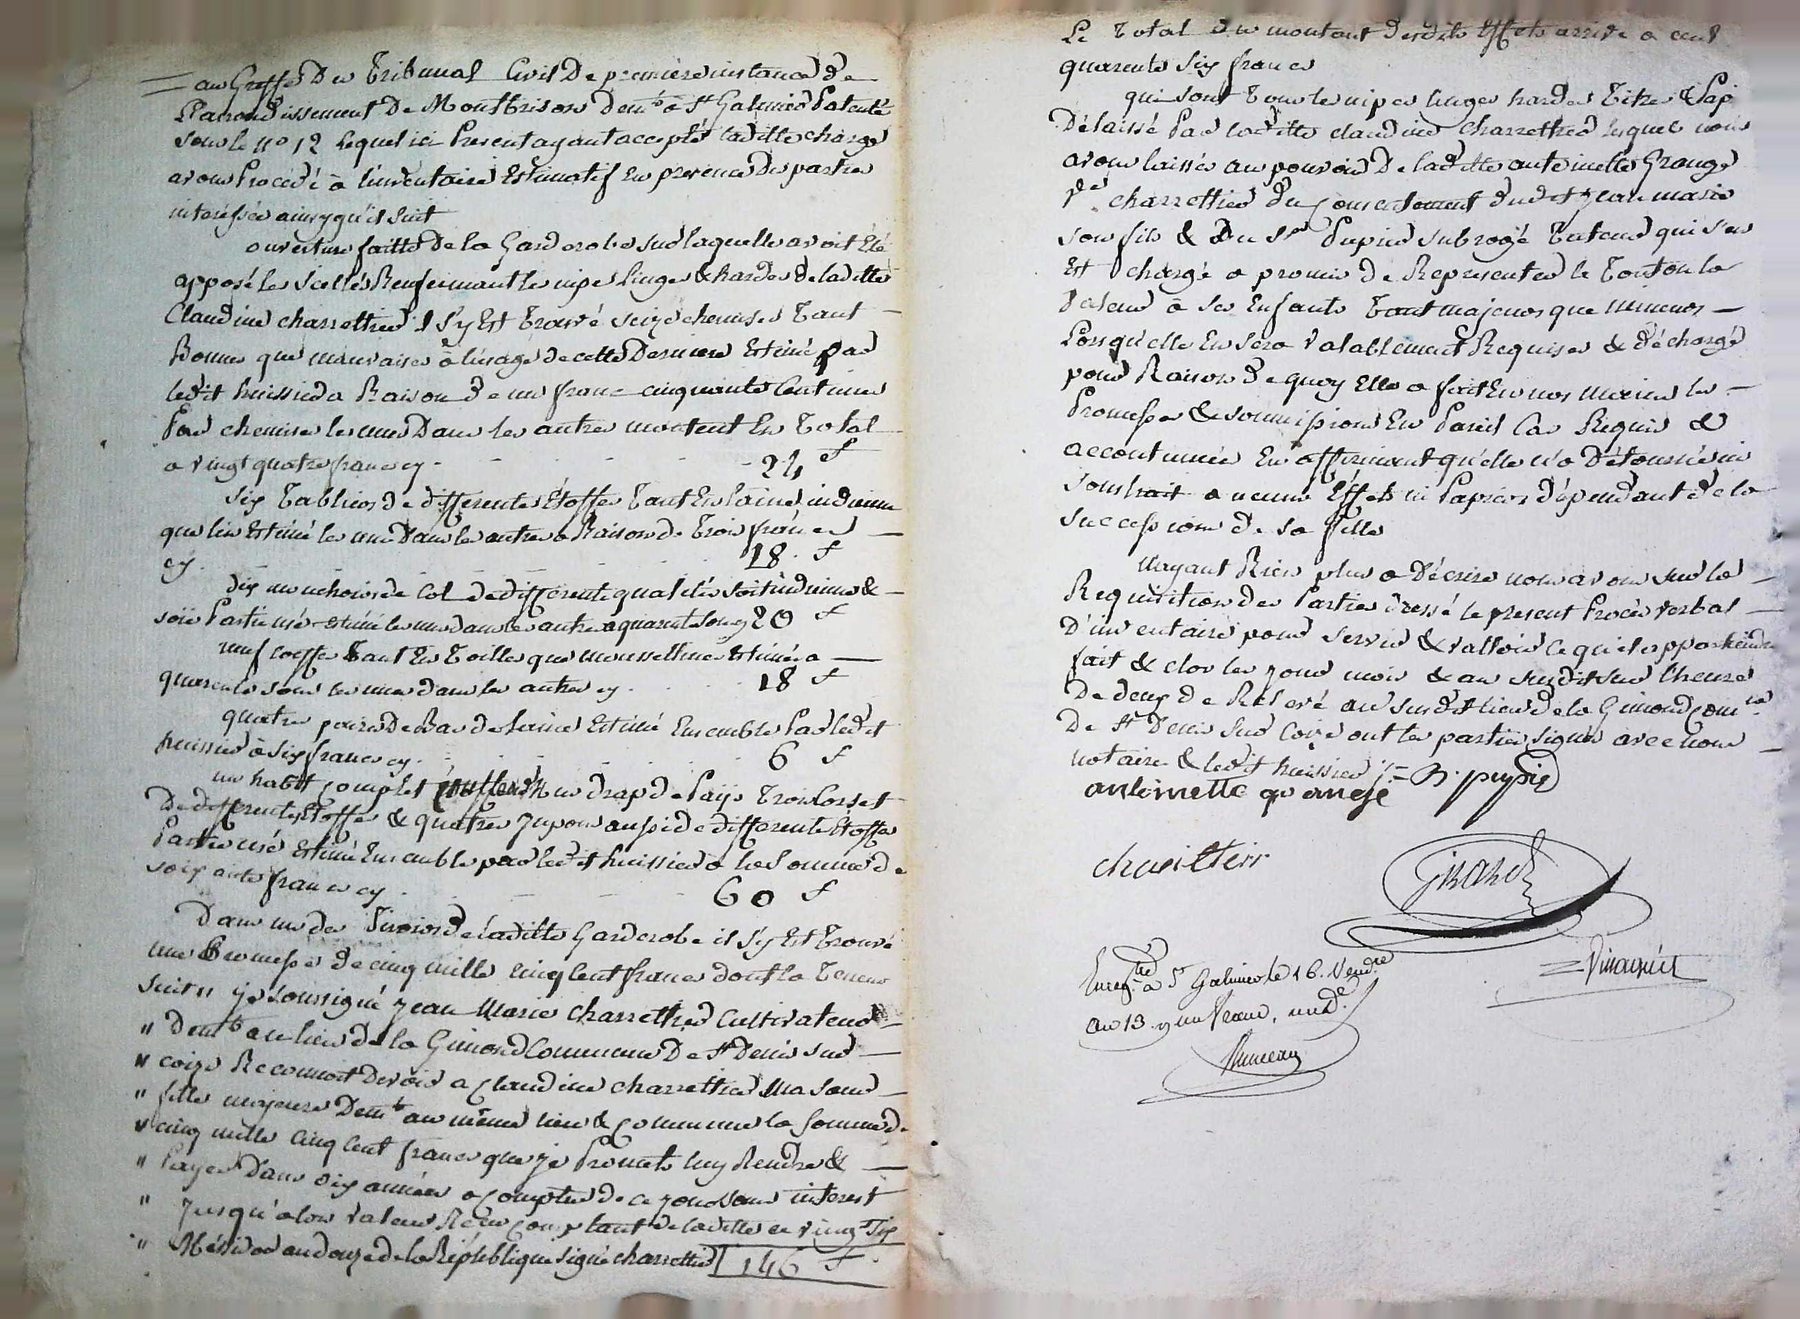 au Greffe Du Tribunal Civil De premiere instance de
L'arrondissement De Montbrison dem.t a St Galmier Patenté
sous le n.o 12 Lequel ici Present ayant accepté laditte charge
avons Procédé à linventaire Estimatif En presence Des parties
interessées ainsy qu'il suit
ouverture faitte de la Garderobe sur laquelle avoit Eté
apposé les scellés Renfermant les nipes linges & hardes de laditte
Claudine charrettier il s'y Est trouvé seize chemises Tant
Bonnes que mauvaises à l'usage de cette Derniere Estimé par
ledit huissier a Raison de un franc cinquante Centimes
Par chemise les unes Dans les autres montent En Total
a vingt quatre francs cy 24 f
six Tabliers de differentes Etoffes Tant En laine, indienne
que lin Estimé les uns Dans les autres a Raison de Trois francs
cy 18 f
dix mouchoirs de Col de differente qualités soit indienne &
soie Partie usé estimé les uns dans les autres a quarente sous cy 20 f
neuf coeffes Tant En Toille que mousselline Estimé a
quarente sous les unes dans les autres cy 18 f
quatre paires de Bas de laine Estimé Ensemble Par ledit
huissier à six francs cy 6 f
un habit complet un drap de Païs Trois Corset
De differentes Etoffes & quatre jupons aussi de differentes Etoffes
Partie usé Estimé Ensemble par ledit huissier a la Somme de
soixante francs cy 60 f
Dans un des Tiroirs de laditte Garderobe il s'y Est Trouvé
une Promesse de cinq mille cinq Cent francs dont la Teneur
suit " je soussigné jean Marie Charrettier Cultivateur
" dem.t au lieu de la Gimond Commune De St Denis sur
" coize Reconnoit devoir a Claudine charrettier Ma soeur
" fille majeure Dem.t au même lieu & commune la somme de
" cinq mille cinq Cent francs que je Promets luy Rendre &
" Payer Dans dix années a compter de ce jour sans interest
" jusqu'alors valeur Reçu comptant de laditte ce vingt six
" Méssidor an douze de la République signé charrettier 146 f
Le Total du montant desdits Effets arrive a cent
quarente six francs
qui sont Tous les nipes linges hardes Titres & Papi
Délaissé Par laditte claudine Charrettier lesquels nous
avons laissés au pouvoir De laditte antoinette Grange
v.e charrettier Du Consentement dudit jean marie
son fils & du Sr Pupier subrogé Tuteur qui s'en
Est chargé a promis de Representer le Tout ou la
valeur à ses Enfants Tant majeurs que mineurs
Lorsqu'elle En sera valablement Requise & déchargé
pour Raison de quoy Elle a fait En nos mains les
Promesses & soumissions En Pareil Cas Requis &
accoutumées En affirmant qu'elle n'a Détourné ni
soustrait aucuns Effets ni Papiers dépendant de la
succession de sa fille
Nayant Rien plus a Décrire nous avons sur la
Requisition des Parties dressé le present Procès verbal
D'inventaire pour servir & valloir ce qu'il appartiendra
fait & clos les jour mois & an susdit sur l'heure
De deux de Relevé au susdit lieu de la Gimond Com.ne
De St Denis sur Coize ont les parties signés avec nous
notaire & ledit huissier B. pupier
antoinette grange
charettier
Girard
Enreg.tré a St Galmier le 16. Vend.re
an 13. r un franc, un d.e